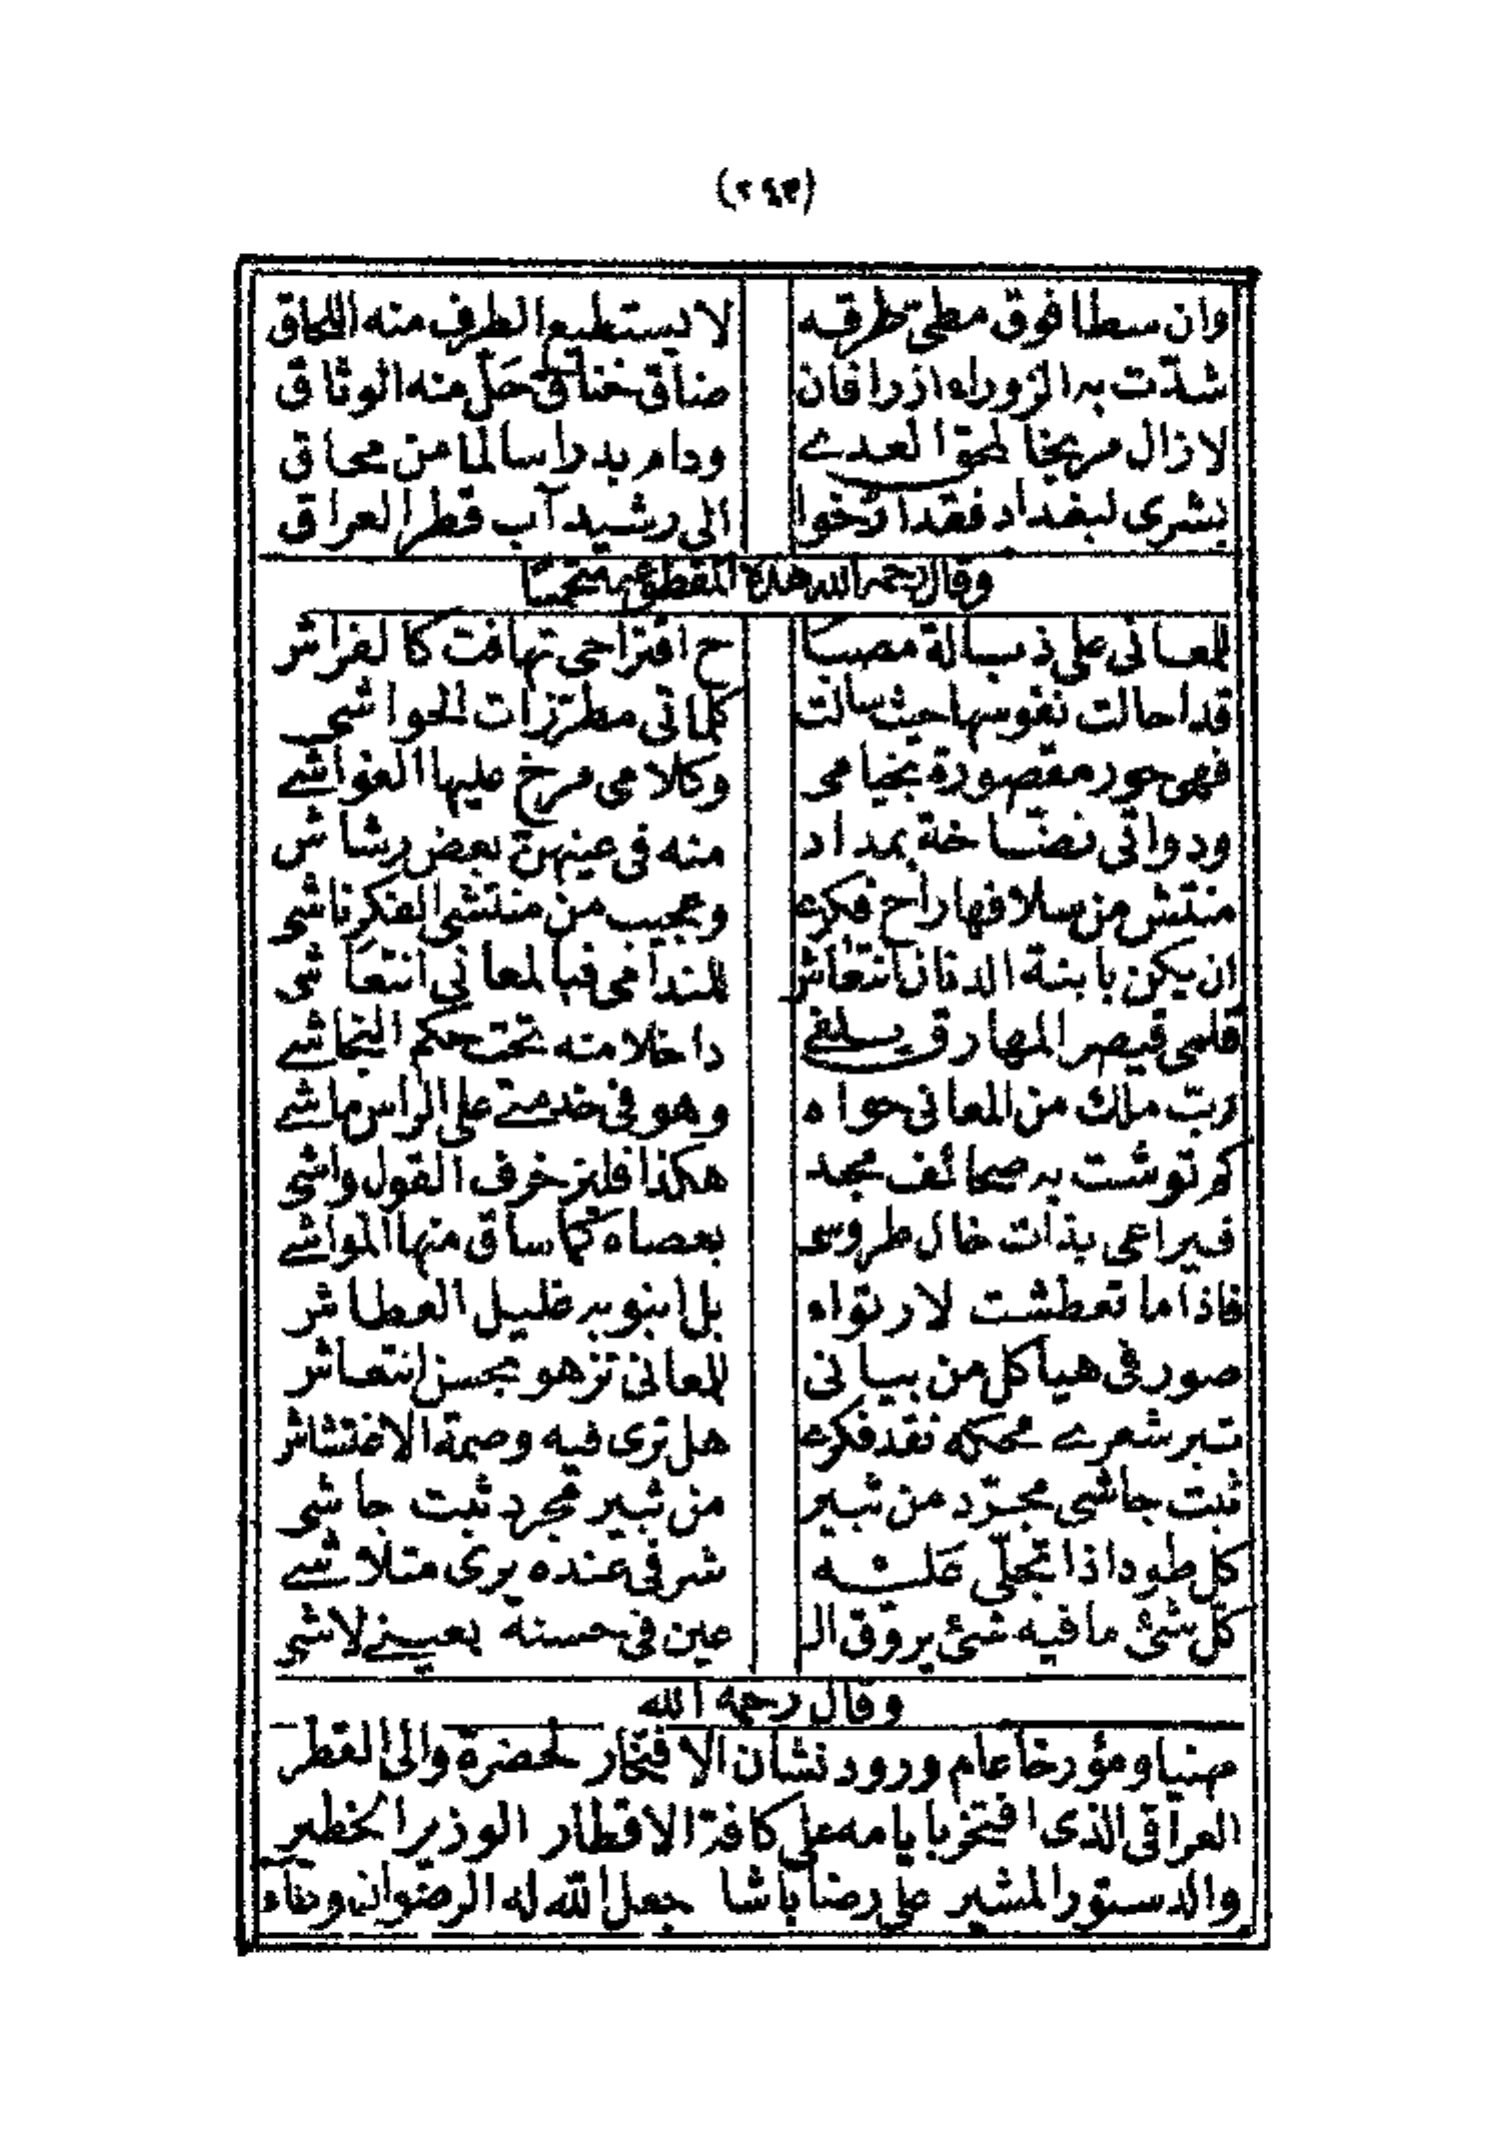 (٢٤٣)
وان سطا فوق مطى طرفه لا يستطيع الطرف منه اللحاق
شدّت به الزوراء ازرا فان ضاق خناق حَلّ منه الوثاق
لا زال مريخا لمحق العدے ودام بدرا سالما من محاق
بشرى لبغداد فقد ارّخوا الى رشيد آب قطر العراق
وقال رحمه الله هذه المقطوعه متحمسًا
للمعانى على ذبالة مصبا ح اقتراحى تهافت كالفراش
قد احالت نفوسها حيث سالت كلماتى مطرّزات الحواشى
فهى حور مقصورة بخيامى وكلامى مرخ عليها الغواشے
ودواتى نضّاخة بمداد منه فى عينهنّ بعض رشاش
منتش من سلافها راح فكرے وعجيب من منتشى الفكر ناشى
ان يكن بابنة الدنان انتعاش للندامى فبالمعانى انتعاشى
قلمى قيصر المهارق يسلفى داخلا منه تحت حكم النجاشے
ربّ ملك من المعانى حواه وهو فى خدمتے على الراس ماشے
كم توشت به صحائف مجد هكذا فليزخرف القول واشى
فيراعى بذات خال طروسى بعصاه كما ساق منها المواشے
فاذا ما تعطشت لارتواء بل انبوبه غليل العطاش
صور فى هياكل من بيانى للمعانى تزهو بحسن انتعاش
تبر شعرے محكه نقد فكرے هل ترى فيه وصمة الاغتشاش
ثبت جاشى مجرّد من ثبير من ثبير مجرد ثبت جاشى
كل طود اذا تجلّى عليه شرفى عنده يرى متلاشے
كل شئ ما فيه شئ يروق الـ عين فى حسنه بعينے لاشى
وقال رحمه الله
مهنيا ومؤرخا عام ورود نشان الافتخار لحضرة والى القطر
العراقى الذى افتخر بايامه على كافة الاقطار الوزير الخطير
والدستور المشير على رضا باشا جعل الله له الرضوان